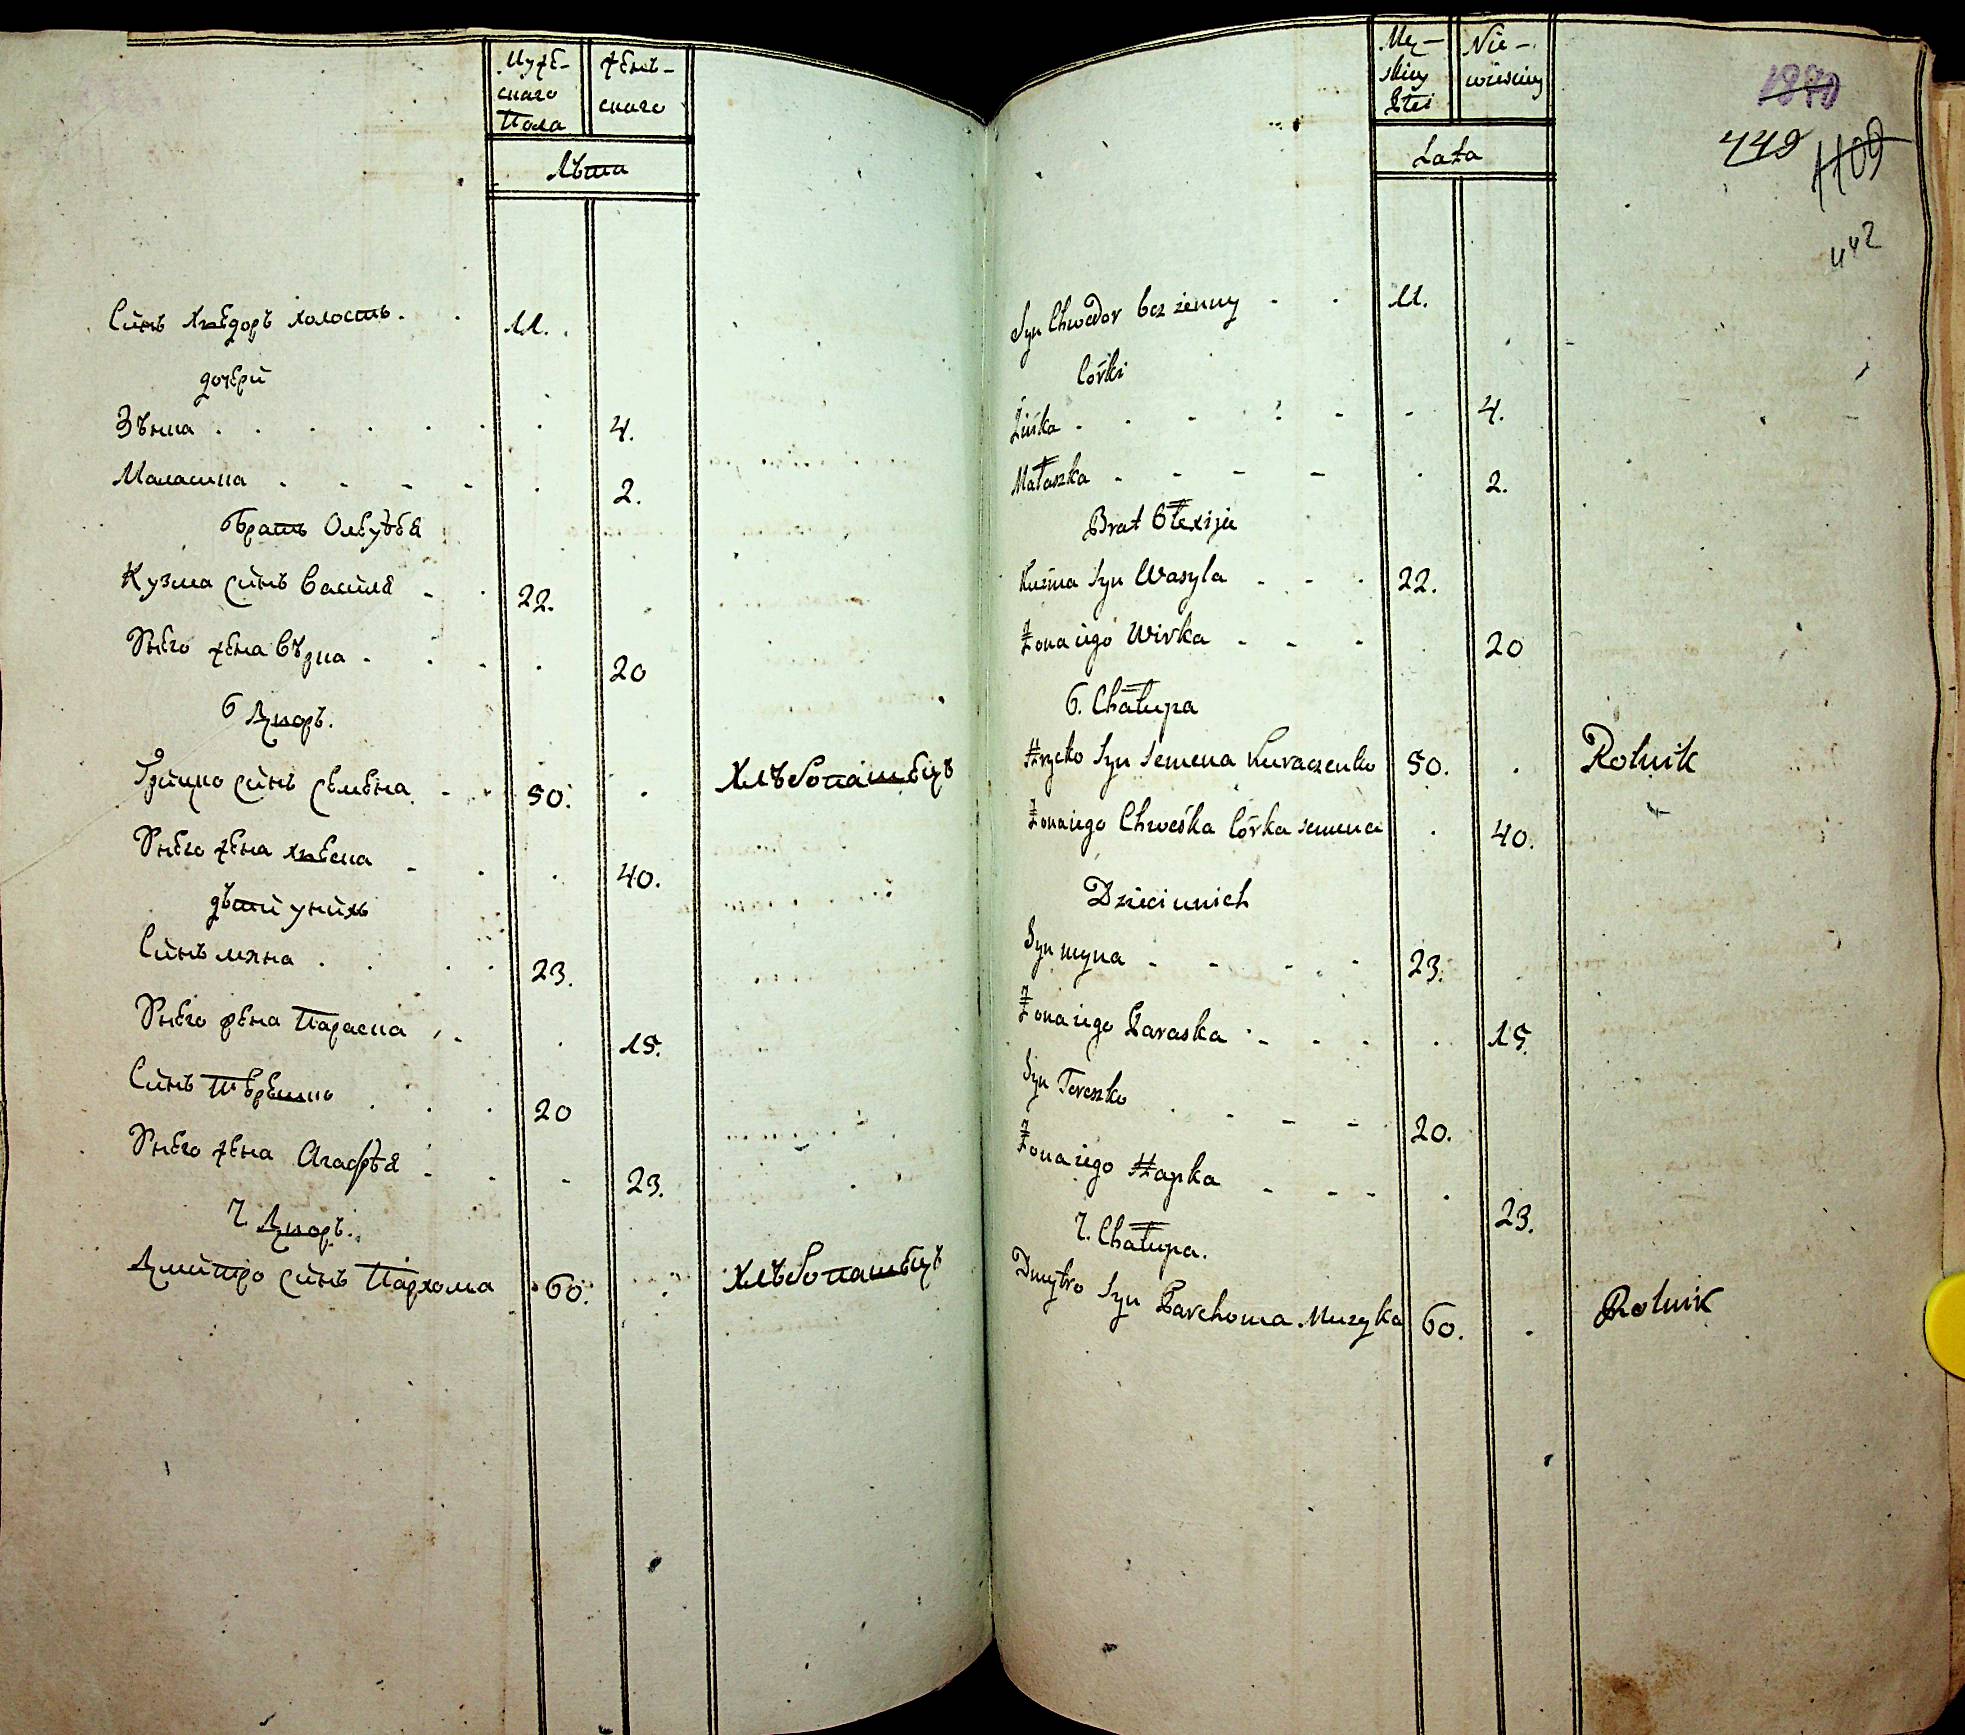 Муже-
скаго
Пола
Жень-
скаго
Лѣта
Синъ Хведоръ холостъ 11.
дочери
Зѣнка 4.
Малашка 2.
братъ Олекѣѣя
Кузма синъ Василя 22.
У него жена Вѣрка 20
6 Дворъ.
Грицко синъ Семена 50. Хлѣбопашецъ
У него жена Хвеска 40.
дѣти у нихъ
Синъ мяна 23.
У него жена Параска 15.
Синъ Терешко 20
У него жена Агафѣя 23.
7 Дворъ.
Дмитро синъ Пархома 60. Хлѣбопашецъ
Mę-
skiey
Płci
Nie-
wieściey
Lata
1880
449
1109
442
Syn Chwedor bez żenny 11.
Córki
Zińka 4.
Małaszka 2.
Brat Ołexija
Kuźma Syn Wasyla 22.
Żona iego Wirka 20
6. Chałupa
Hrycko Syn Semena Kuraczenko 50. Rolnik
Żona iego Chweśka Córka semena 40.
Dzieci u nich
Syn myna 23.
Żona iego Paraska 15.
Syn Tereszko 20.
Żona iego Hapka 23.
7. Chałupa.
Dmytro Syn Parchoma Muzyka 60. Rolnik